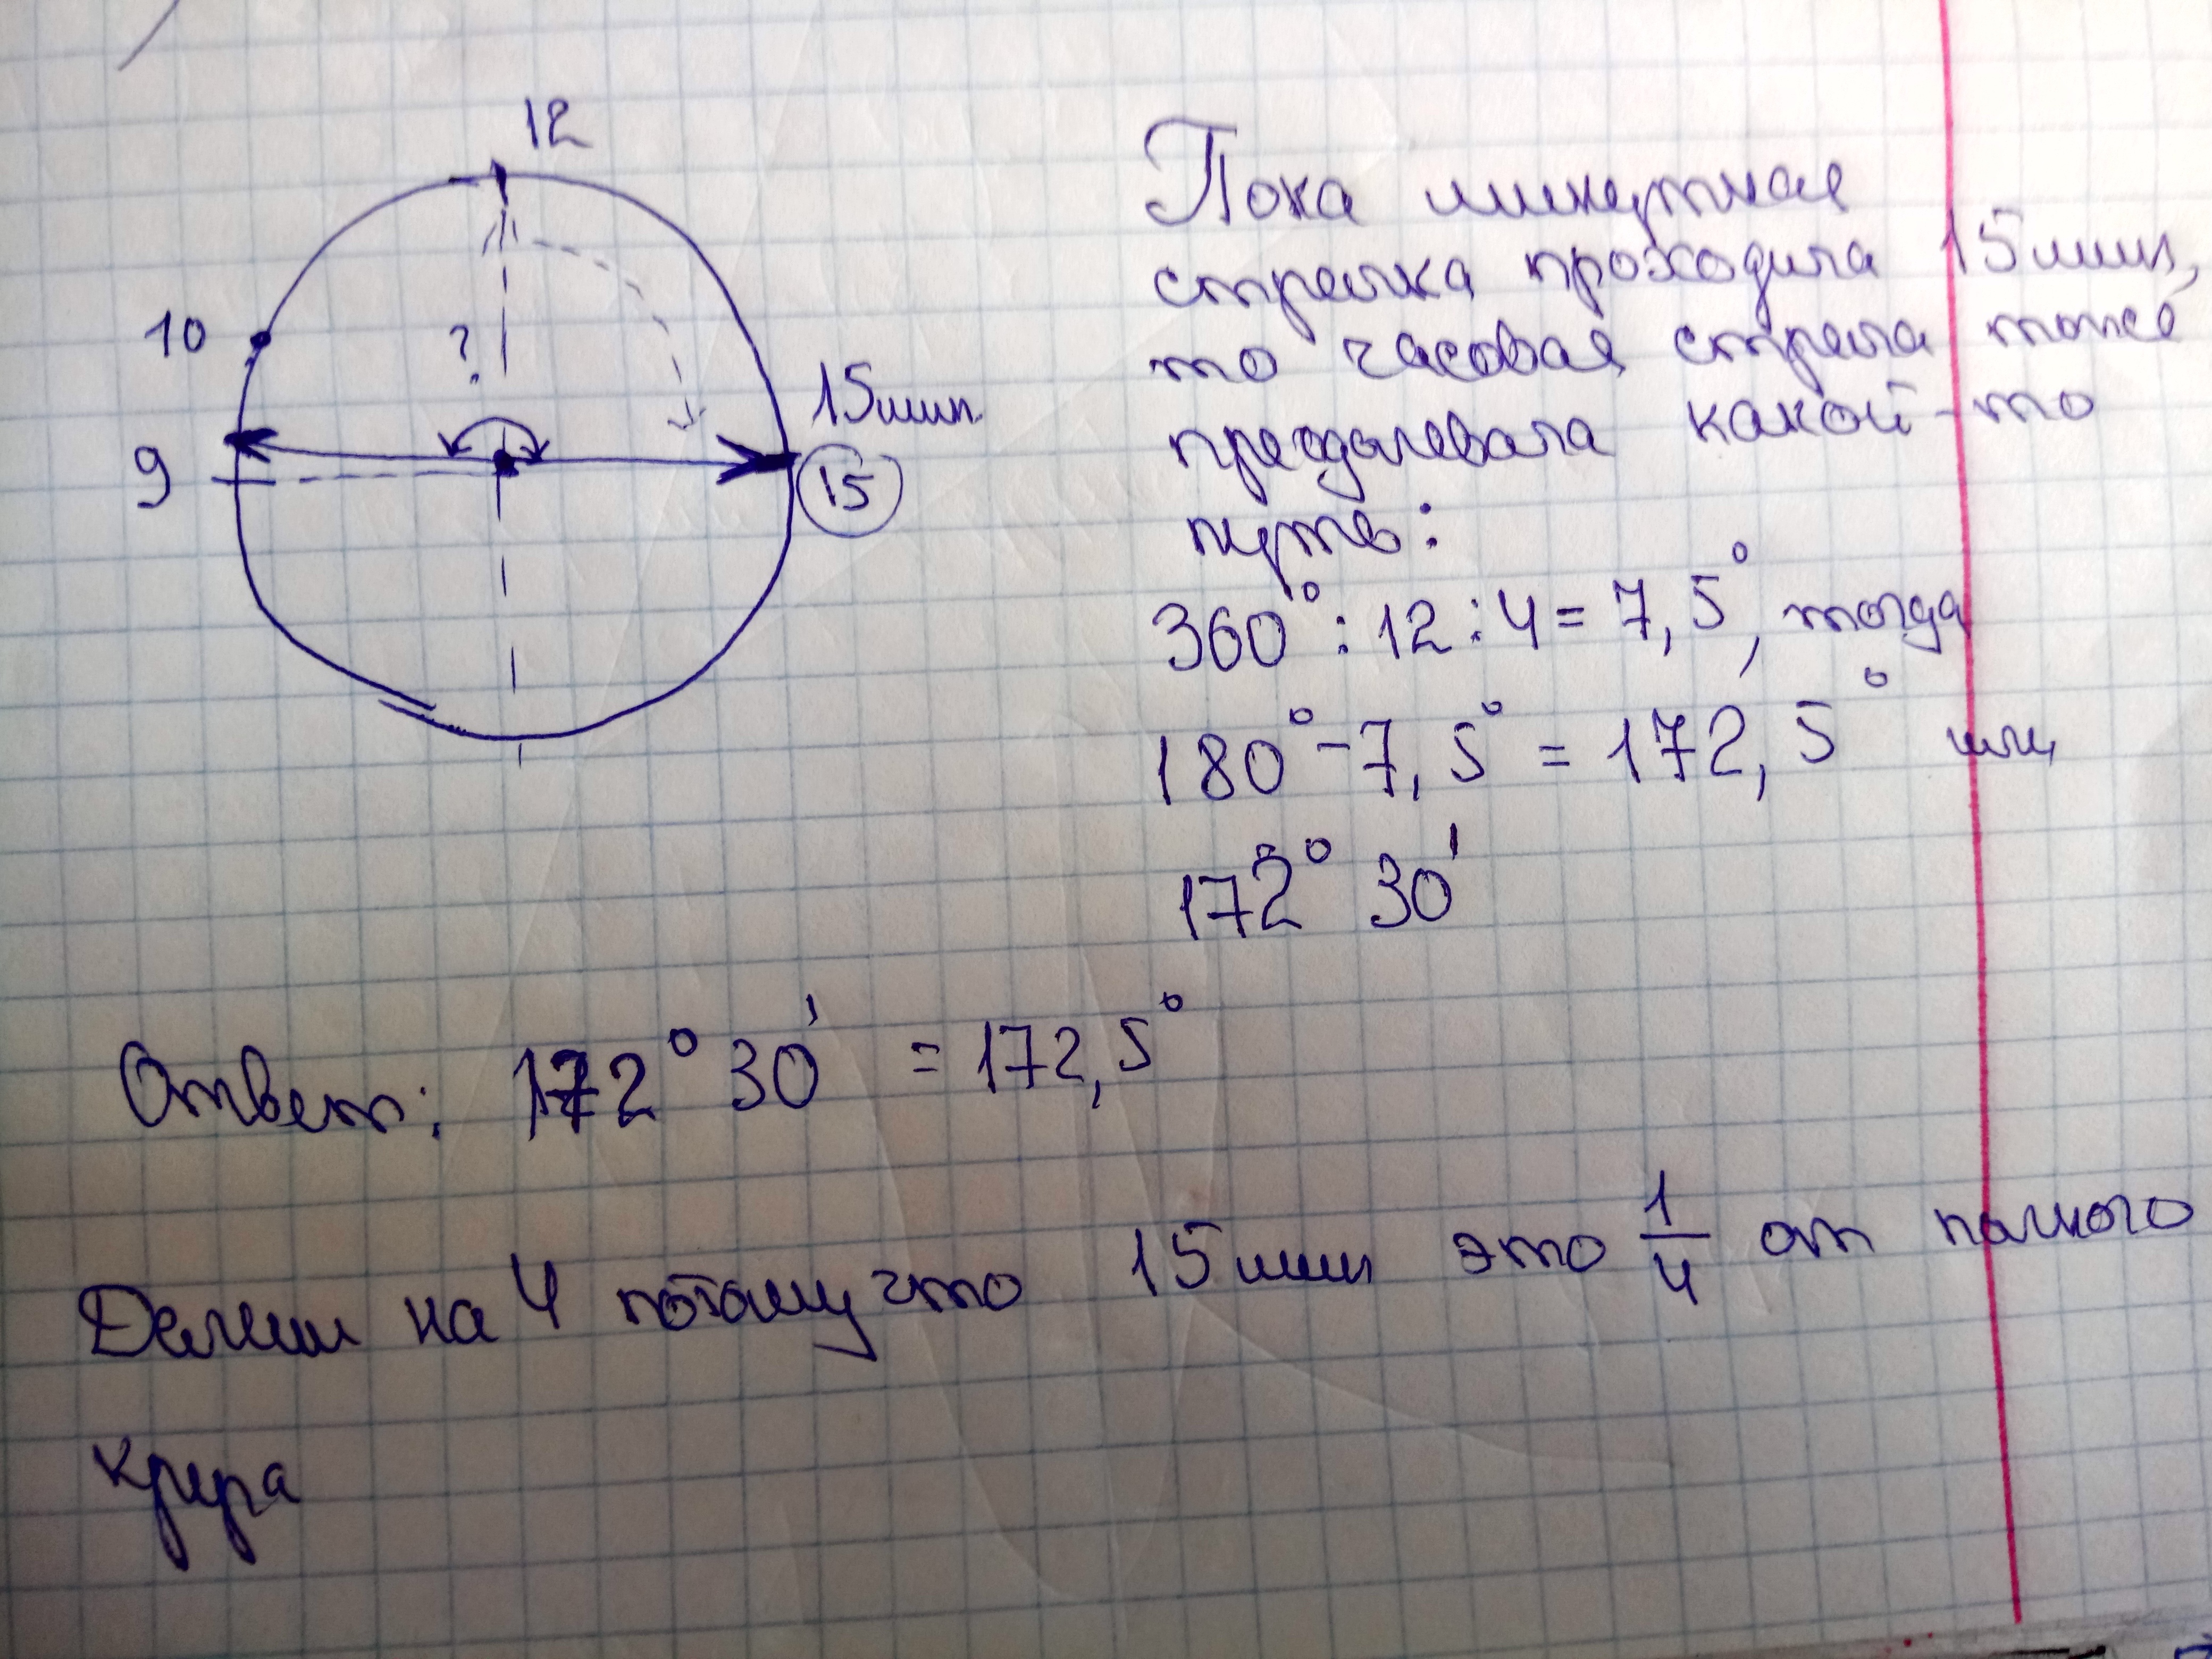 12
10
?
9
15мин.
15
Пока минутная
стрелка проходила 15мин,
то часовая стрела тоже
преодолевала какой-то
путь:
360° : 12 : 4 = 7,5°, тогда
180° - 7,5° = 172,5° или
172° 30'
Ответ: 172° 30' = 172,5°
Делим на 4 потому что 15 мин это 1/4 от полного
круга